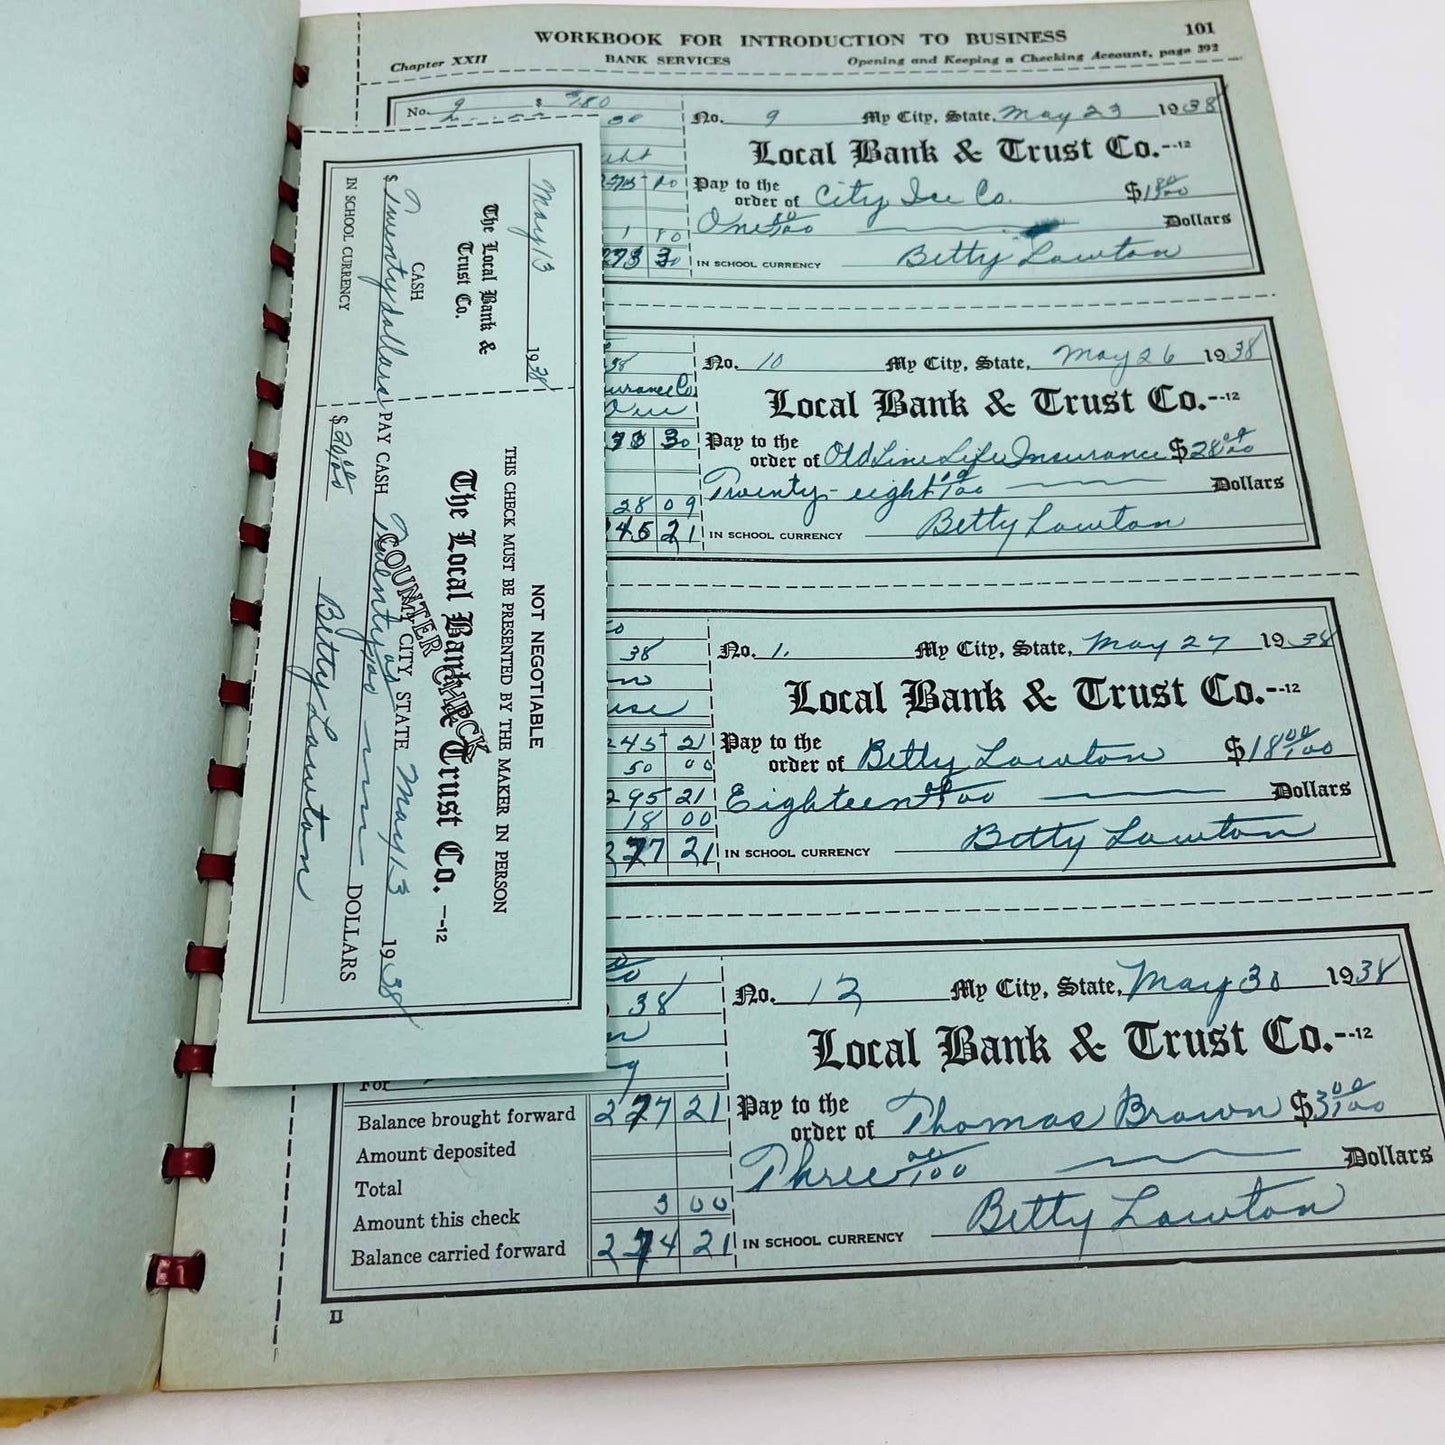 WORKBOOK FOR INTRODUCTION TO BUSINESS 101
Chapter XXII BANK SERVICES Opening and Keeping a Checking Account, page 392
No. 9 $
No. 9 My City, State, May 23 1938
Local Bank & Trust Co.--12
Pay to the
order of City Ice Co. $1 80/100
One 80/100 Dollars
273 30
IN SCHOOL CURRENCY Betty Lawton
No. 10 My City, State, May 26 1938
Local Bank & Trust Co.--12
Pay to the
order of Old Line Life Insurance $28 09/100
Twenty-eight 09/100 Dollars
28 09
245 21
IN SCHOOL CURRENCY Betty Lawton
38
No. My City, State, May 27 1938
Local Bank & Trust Co.--12
245 21
Pay to the
order of Betty Lawton $18 00/100
50 00
295 21
Eighteen 00/100 Dollars
18 00
277 21
IN SCHOOL CURRENCY Betty Lawton
38
No. 12 My City, State, May 30 1938
Local Bank & Trust Co.--12
For
Pay to the
order of Thomas Brown $3 00/100
Three 00/100 Dollars
Balance brought forward 277 21
Amount deposited
Total
Amount this check 3 00
Balance carried forward 274 21
IN SCHOOL CURRENCY Betty Lawton
II
May 13 1938
The Local Bank &
Trust Co.
CASH
$ Twenty dollars
IN SCHOOL CURRENCY
NOT NEGOTIABLE
THIS CHECK MUST BE PRESENTED BY THE MAKER IN PERSON
The Local Bank & Trust Co. --12
COUNTER CHECK
MY CITY, STATE May 13 1938
PAY CASH Twenty 00/100 DOLLARS
$ 20 00/100
Betty Lawton